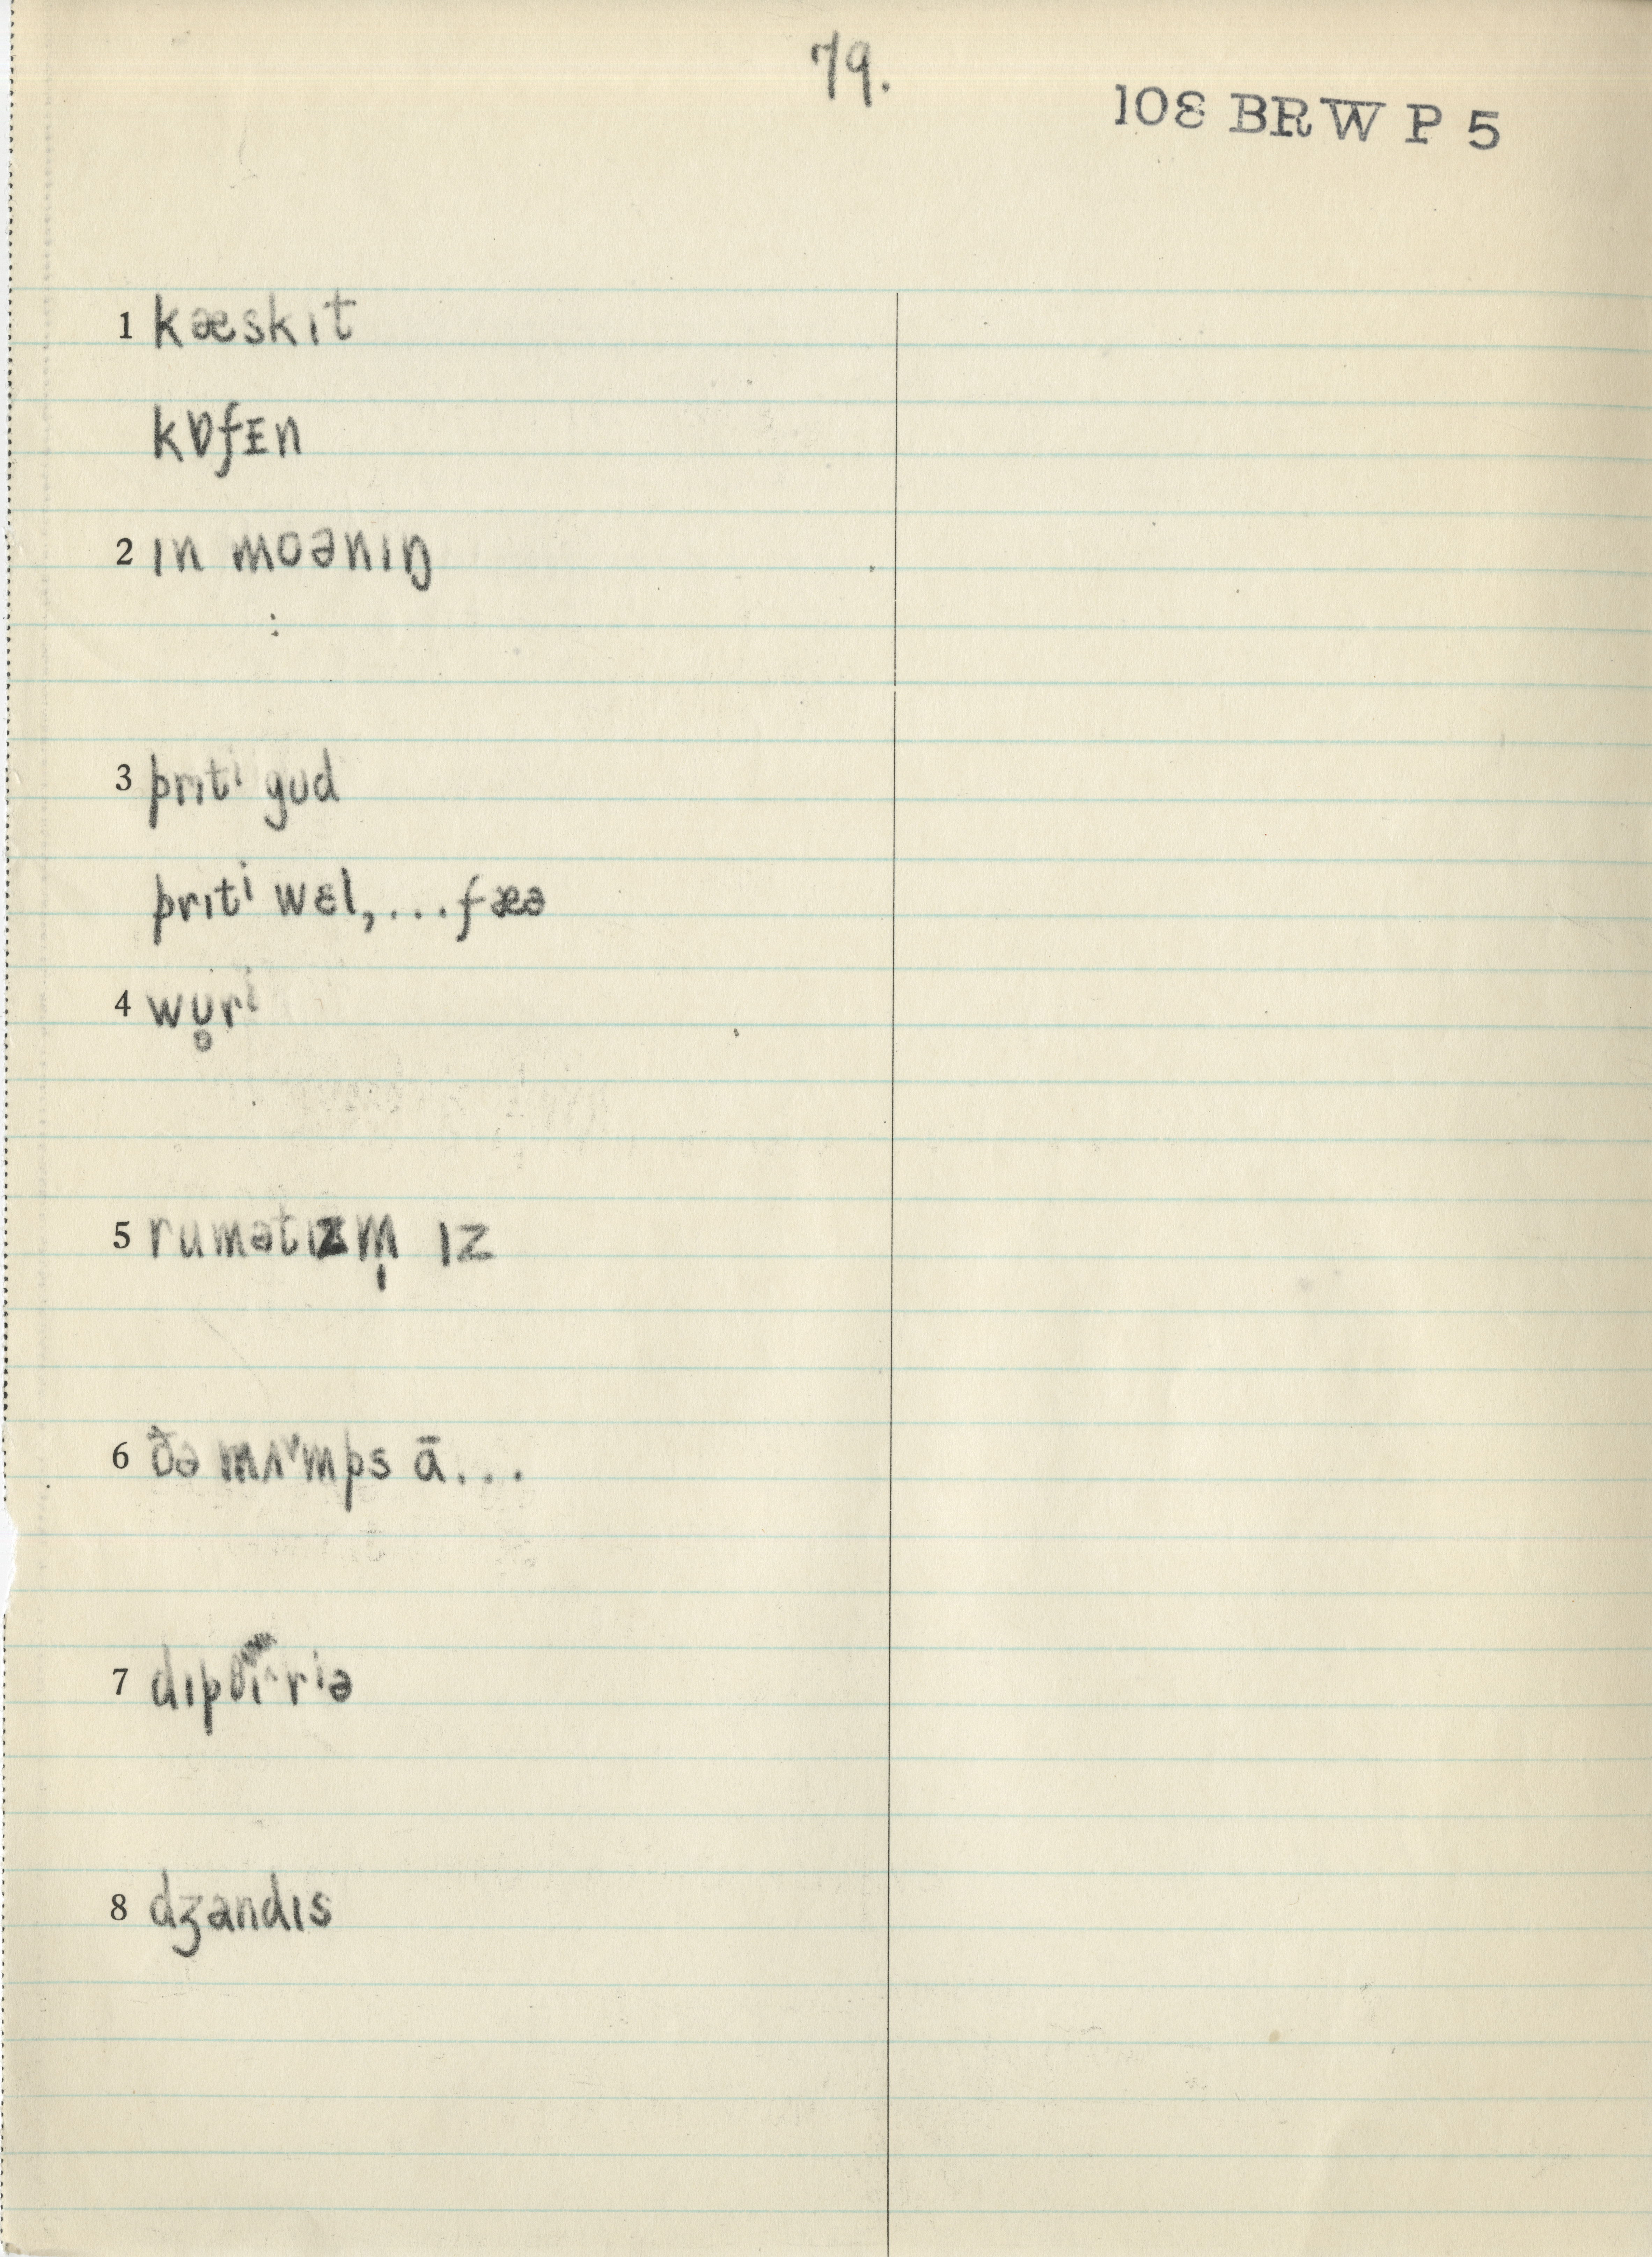 79.
108 BRW P 5
1 kæskɪt
kɒfᴇn
2 ɪn moənɪŋ
3 prɪtⁱ gud
prɪtⁱ wɛl, ... fæə
4 wu̥rⁱ
5 rumətɪzm̩ ɪz
6 ðə mʌᵛmps ā...
7 dɪpθɪˆrⁱə
8 dʒandɪs